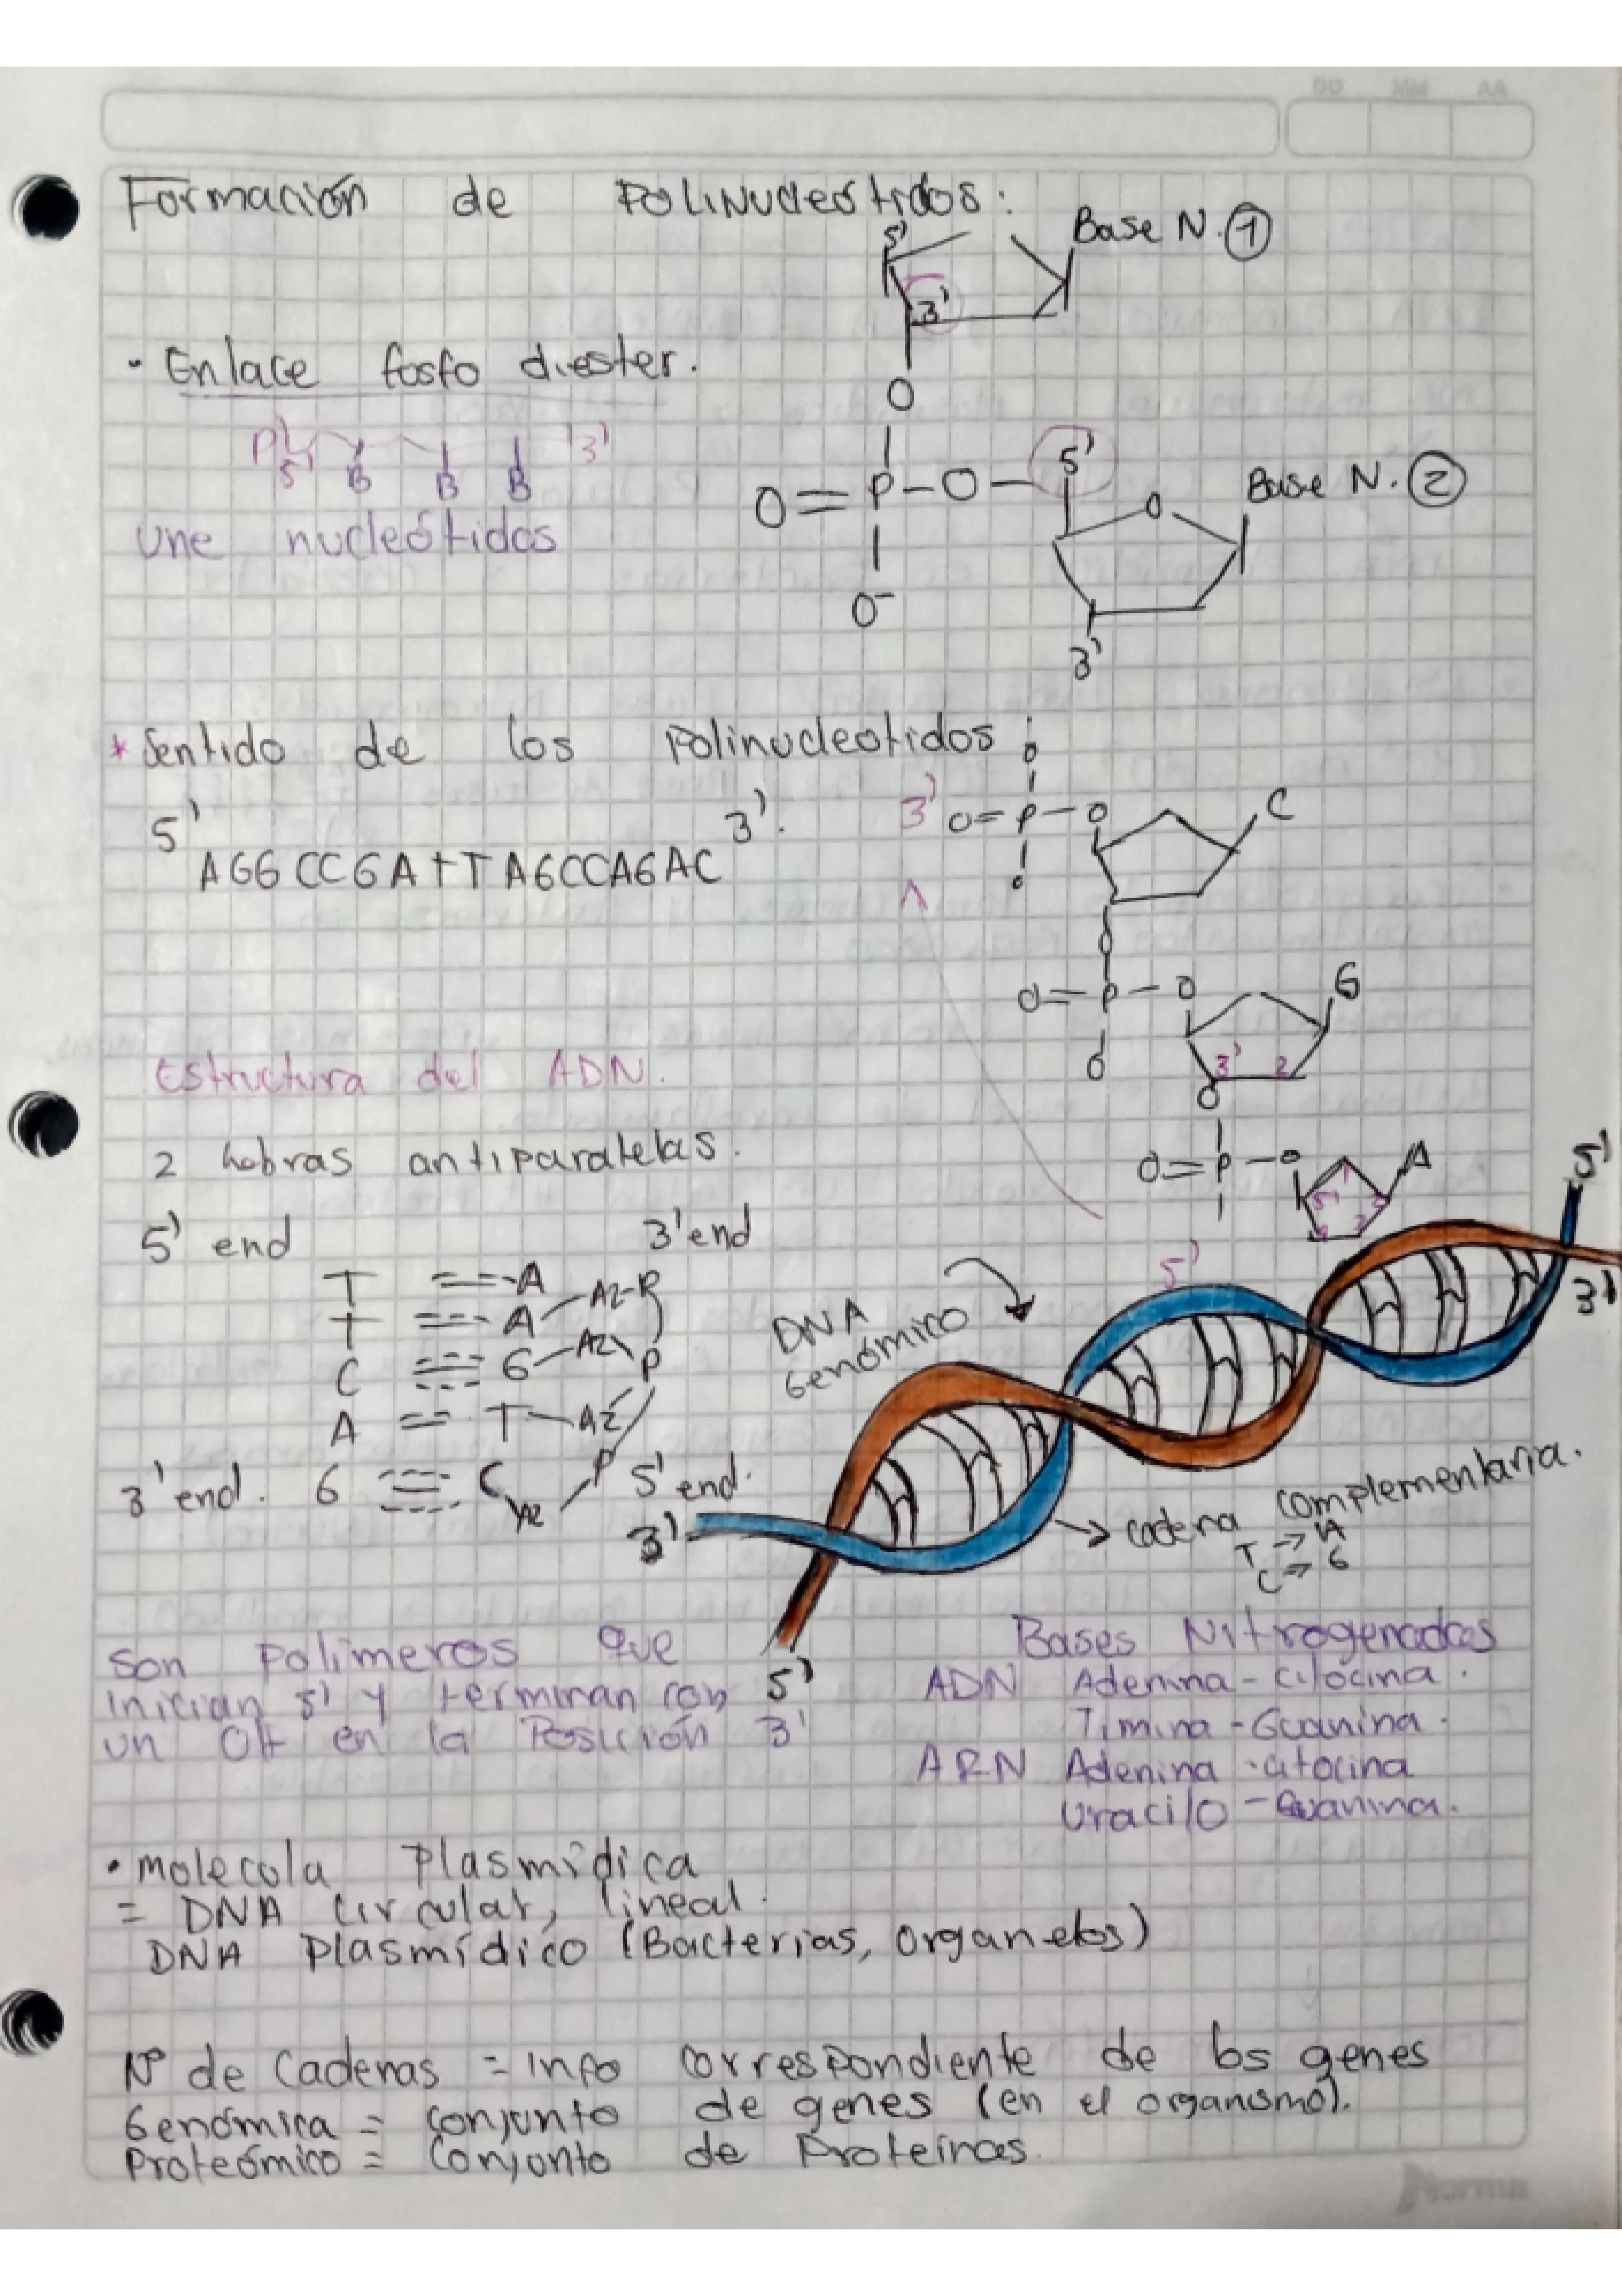 DD MM AA
Formación de Polinucleótidos:
5'
Base N. 1
3'
• Enlace fosfo diester.
O
P 5' B B B 3'
O=P-O-5'
Base N. 2
O
une nucleótidos
O-
3'
* Sentido de los Polinucleotidos:
5' 3'.
AGGCCGATTTAGCCAGAC
3' O=P-O C
O
O
O
O=P-O G
O
3' 2
O
Estructura del ADN.
2 hebras antiparalelas.
O=P-O A
5' 1
3 2
5'
5'
3'
5' end 3' end
T A
T A AZ-P
C G AZ P
A T AZ
3' end. G C AZ P 5' end.
DNA
Genómico
3'
→ cadena complementaria.
T → A
C → G
5'
Son Polimeros que
inician 5' y terminan con
un OH en la Posición 3'
Bases Nitrogenadas
ADN Adenina - citocina.
Timina - Guanina.
ARN Adenina - citocina
Uracilo - Guanina.
• molecola Plasmídica
= DNA circular, lineal.
DNA Plasmídico (Bacterias, organelos)
Nº de Cadenas = info correspondiente de los genes
Genómica = conjunto de genes (en el organismo).
Proteómico = conjonto de Proteínas.
Norma